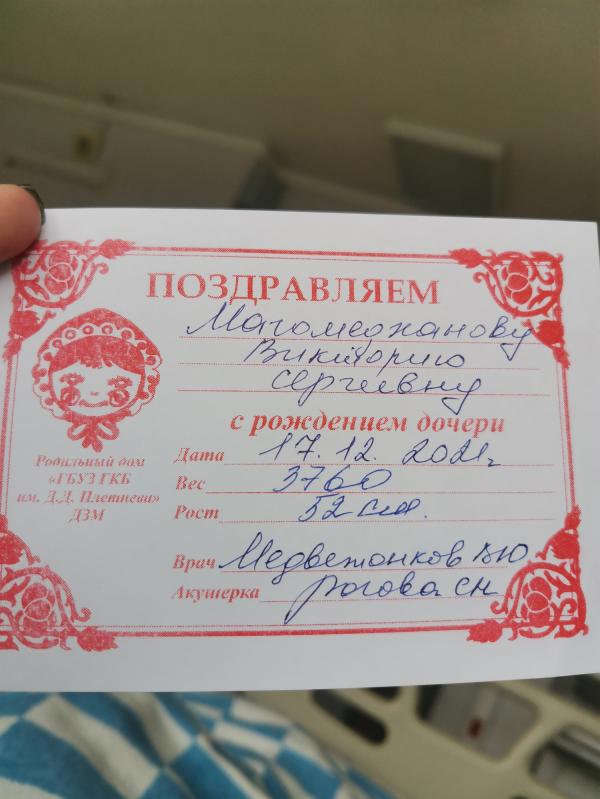 ПОЗДРАВЛЯЕМ
Магомеджанову
Викторию
Сергеевну
с рождением дочери
Дата 17.12.2021г
Вес 3760
Рост 52 см.
Родильный дом
«ГБУЗ ГКБ
им. Д.Д. Плетнева»
ДЗМ
Врач Медвежонков ВЮ
Акушерка Рогова СН